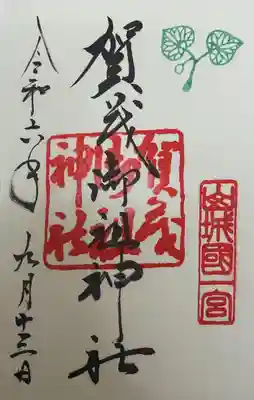 山城國一宮
賀茂御祖神社
賀茂御祖神社
令和六年 九月十三日